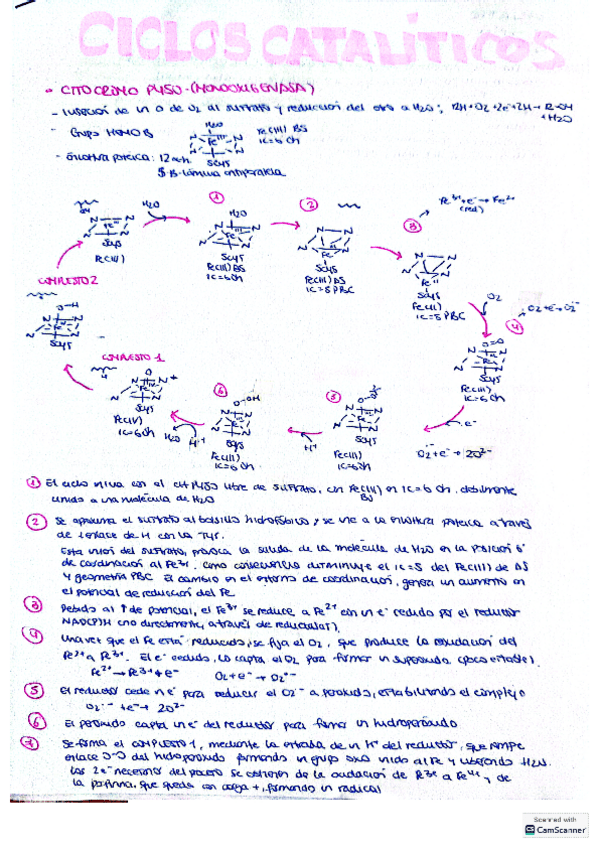 CICLOS CATALÍTICOS
• CITOCROMO P450 (MONOOXIGENASA)
- Inserción de un O de O2 al sustrato y reducción del otro a H2O; RH + O2 + 2e- + 2H+ → R-OH + H2O
- Grupo HEMO B
H2O
N N
Fe III
N N
SCys
Fe(III) BS
IC=6 Oh
- Envoltura proteica: 12 α-h
5 β-lámina antiparalela
①
②
③
Fe3+ + e- → Fe2+
(red)
H2O
H2O
Fe III
SCys
Fe(III)
SCys
Fe(III) BS
IC=6 Oh
SCys
Fe(III) AS
IC=5 PBC
Fe II
SCys
Fe(II)
IC=5 PBC
O2
④
O2 + e- → O2-
COMPUESTO 2
O-H
SCys
COMPUESTO 1
SCys
Fe(IV)
IC=6 Oh
H2O
H+
⑥
O-OH
SCys
Fe(III)
IC=6 Oh
H+
⑤
SCys
Fe(III)
IC=6 Oh
e-
O=O
SCys
Fe(III)
IC=6 Oh
O2·- + e- → 2O2-
① El ciclo inicia con el cit P450 libre de sustrato, con Fe(III) BS en IC=6 Oh, débilmente
unido a una molécula de H2O
② Se aproxima el sustrato al bolsillo hidrofóbico y se une a la envoltura proteica a través
de enlace de H con la Tyr.
Esta unión del sustrato, provoca la salida de la molécula de H2O en la posición 6ª
de coordinación al Fe3+. Como consecuencia disminuye el IC=5 del Fe(III) de AS
y geometría PBC. El cambio en el entorno de coordinación, genera un aumento en
el potencial de reducción del Fe.
③ Debido al ↑ de potencial, el Fe3+ se reduce a Fe2+ con un e- cedido por el reductor
NAD(P)H (no directamente, a través de reductasa).
④ Una vez que el Fe está reducido, se fija el O2, que produce la oxidación del
Fe2+ a Fe3+. El e- cedido, lo capta el O2 para formar un superóxido (poco estable).
Fe2+ → Fe3+ + e- O2 + e- → O2·-
⑤ El reductor cede un e- para reducir el O2·- a peróxido, estabilizando el complejo
O2·- + e- → 2O2-
⑥ El peróxido capta un e- del reductor para formar un hidroperóxido
⑦ Se forma el COMPUESTO 1, mediante la entrada de un H+ del reductor, que rompe
enlace O-O del hidroperóxido formando un grupo oxo unido al Fe y liberando H2O.
Los 2e- necesarios del proceso se obtienen de la oxidación de Fe3+ a Fe4+ y de
la porfirina, que queda con carga +, formando un radical
Scanned with
CS CamScanner